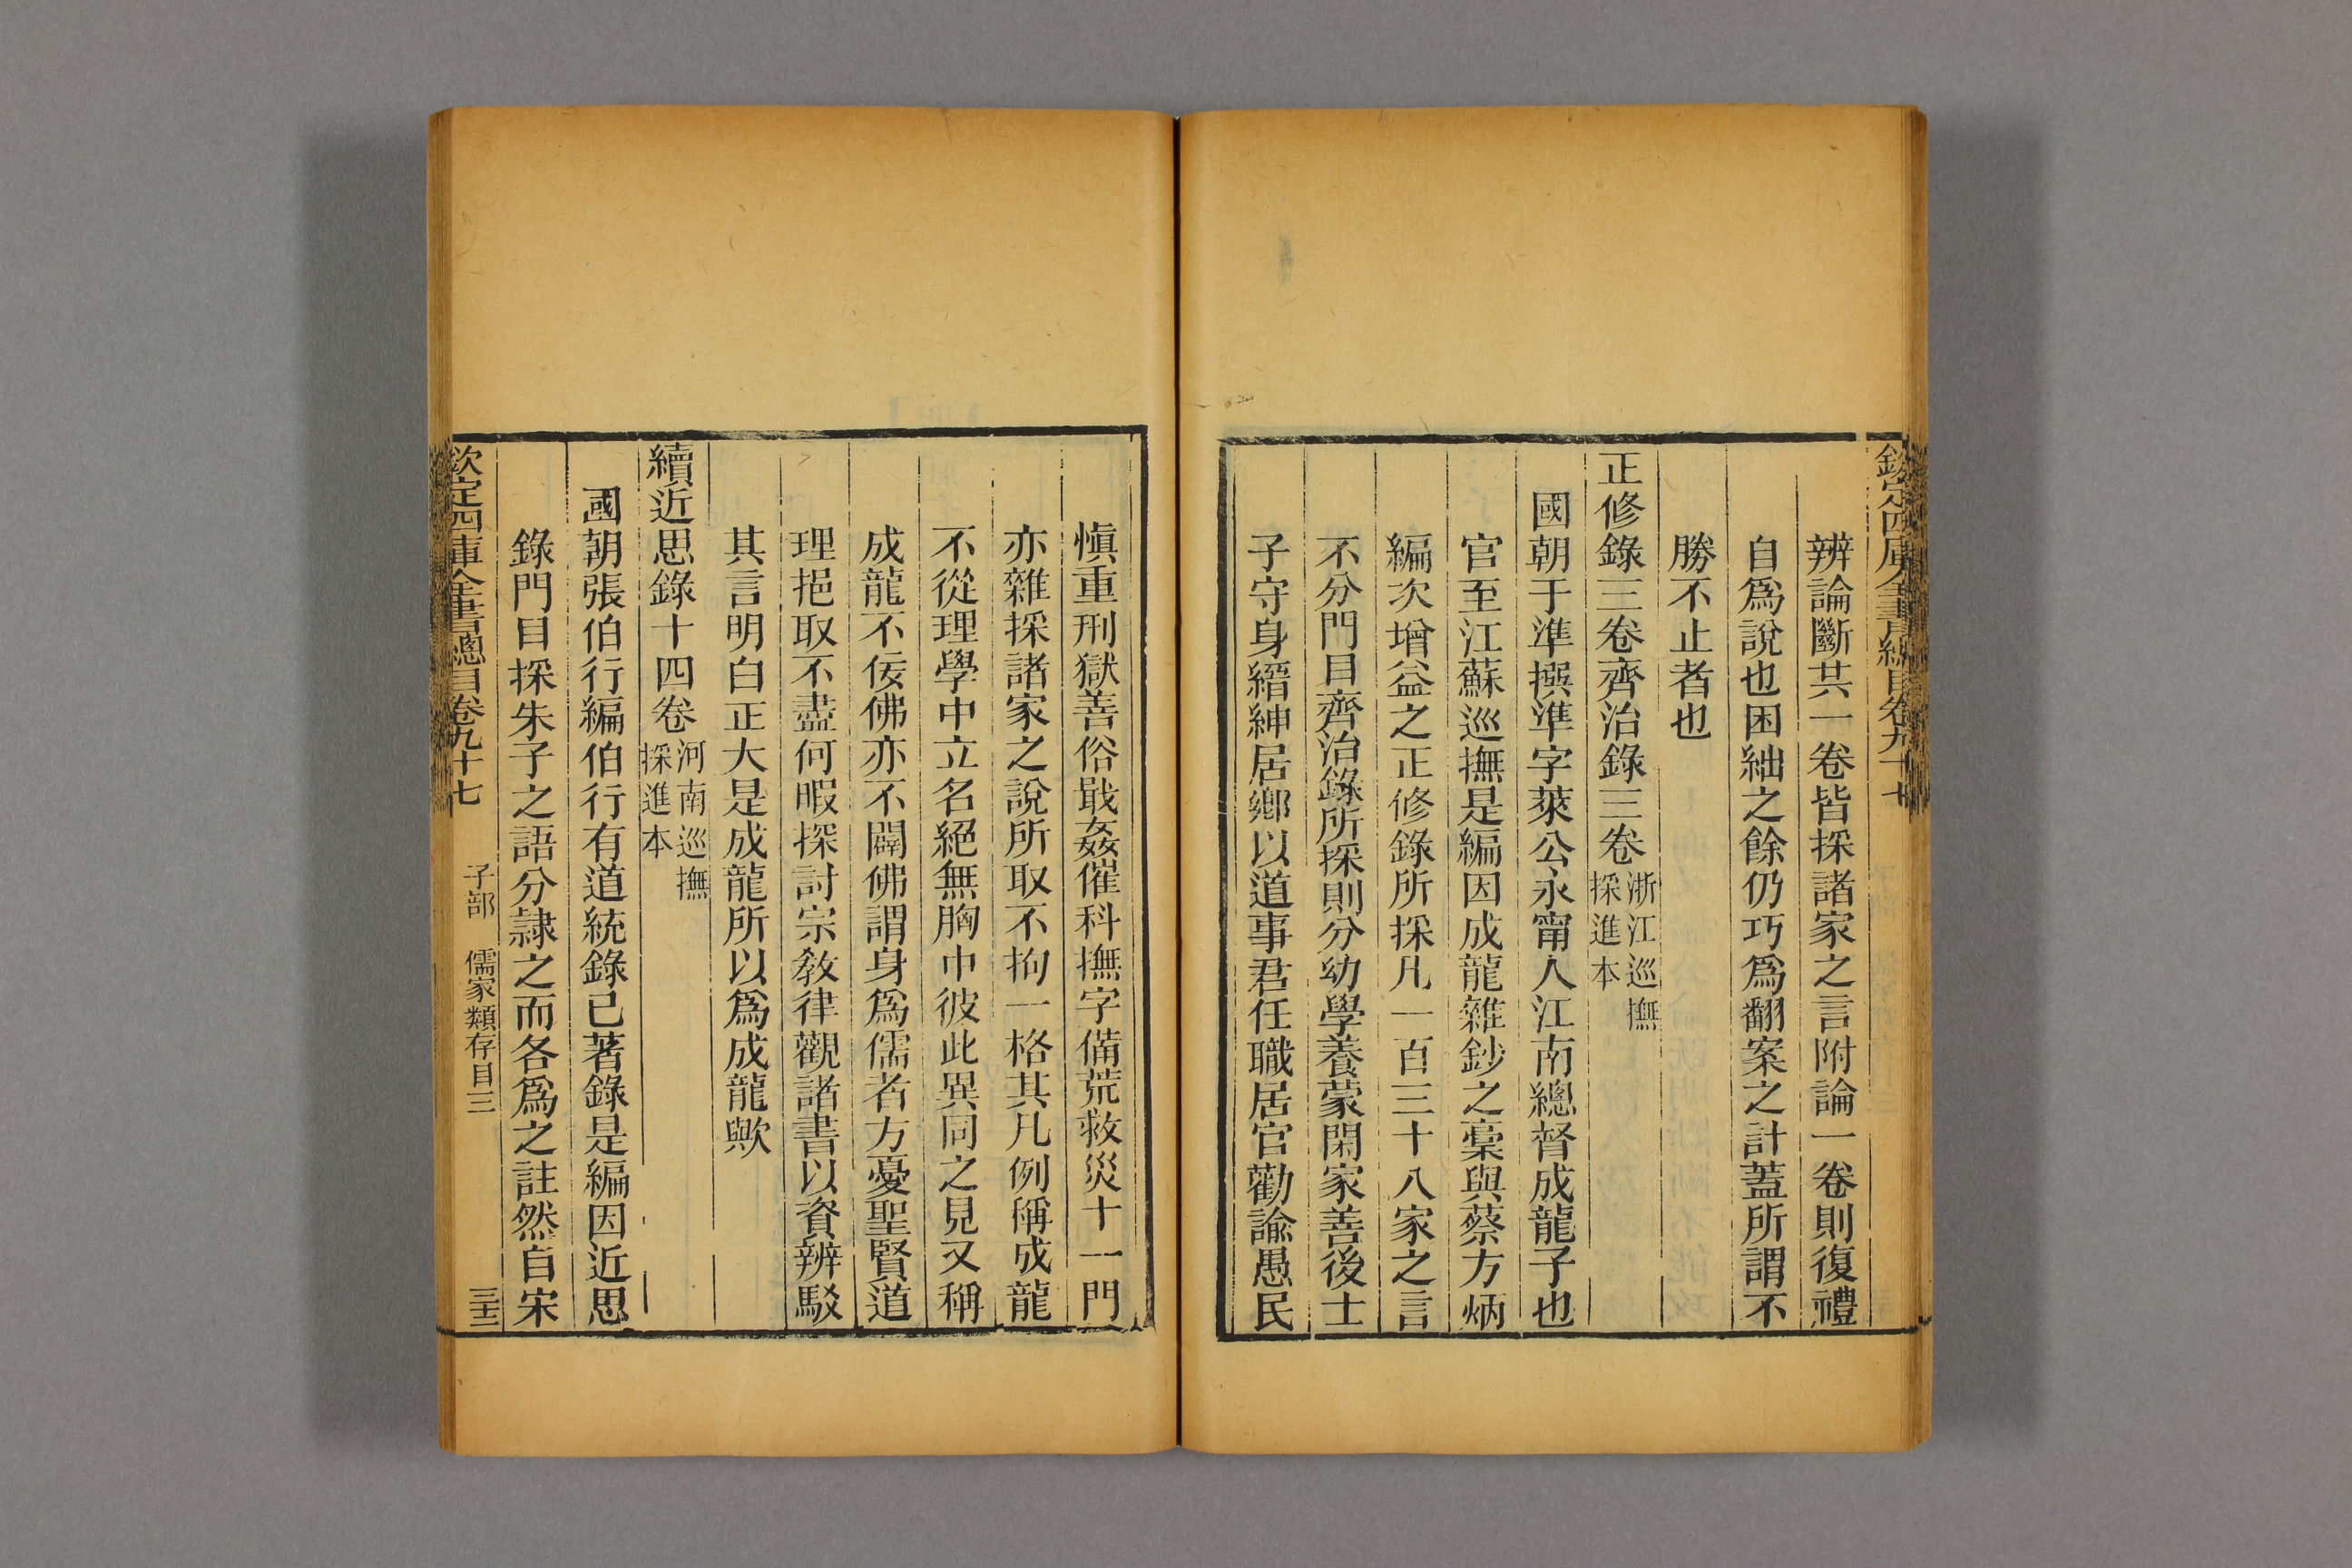 欽定四庫全書總目卷九十七
辨論斷共一卷皆採諸家之言附論一卷則復禮
自爲說也困絀之餘仍巧爲翻案之計蓋所謂不
勝不止者也
正修錄三卷齊治錄三卷
浙江巡撫
採進本
國朝于準撰準字萊公永甯人江南總督成龍子也
官至江蘇巡撫是編因成龍雜鈔之稾與蔡方炳
編次增益之正修錄所採凡一百三十八家之言
不分門目齊治錄所採則分幼學養蒙閑家善後士
子守身縉紳居鄉以道事君任職居官勸諭愚民
愼重刑獄善俗戢姦催科撫字備荒救災十一門
亦雜採諸家之說所取不拘一格其凡例稱成龍
不從理學中立名絕無胸中彼此異同之見又稱
成龍不佞佛亦不闢佛謂身爲儒者方憂聖賢道
理挹取不盡何暇探討宗教律觀諸書以資辨駁
其言明白正大是成龍所以爲成龍歟
續近思錄十四卷
河南巡撫
採進本
國朝張伯行編伯行有道統錄已著錄是編因近思
錄門目採朱子之語分隷之而各爲之註然自宋
欽定四庫全書總目卷九十七
子部　儒家類存目三
三十二